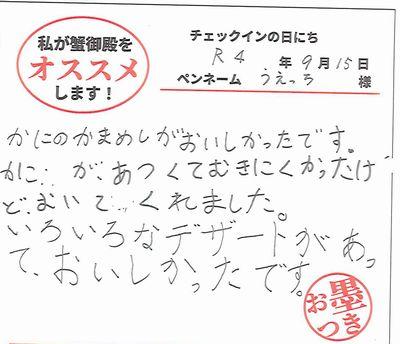 私が蟹御殿を
オススメ
します！
チェックインの日にち
R4.年9月15日
ペンネーム うえっち 様
かにのかまめしがおいしかったです。
かに が、あつくてむきにくかったけ
ど、おいて くれました。
いろいろなデザートがあっ
て、おいしかったです。
墨
おつき